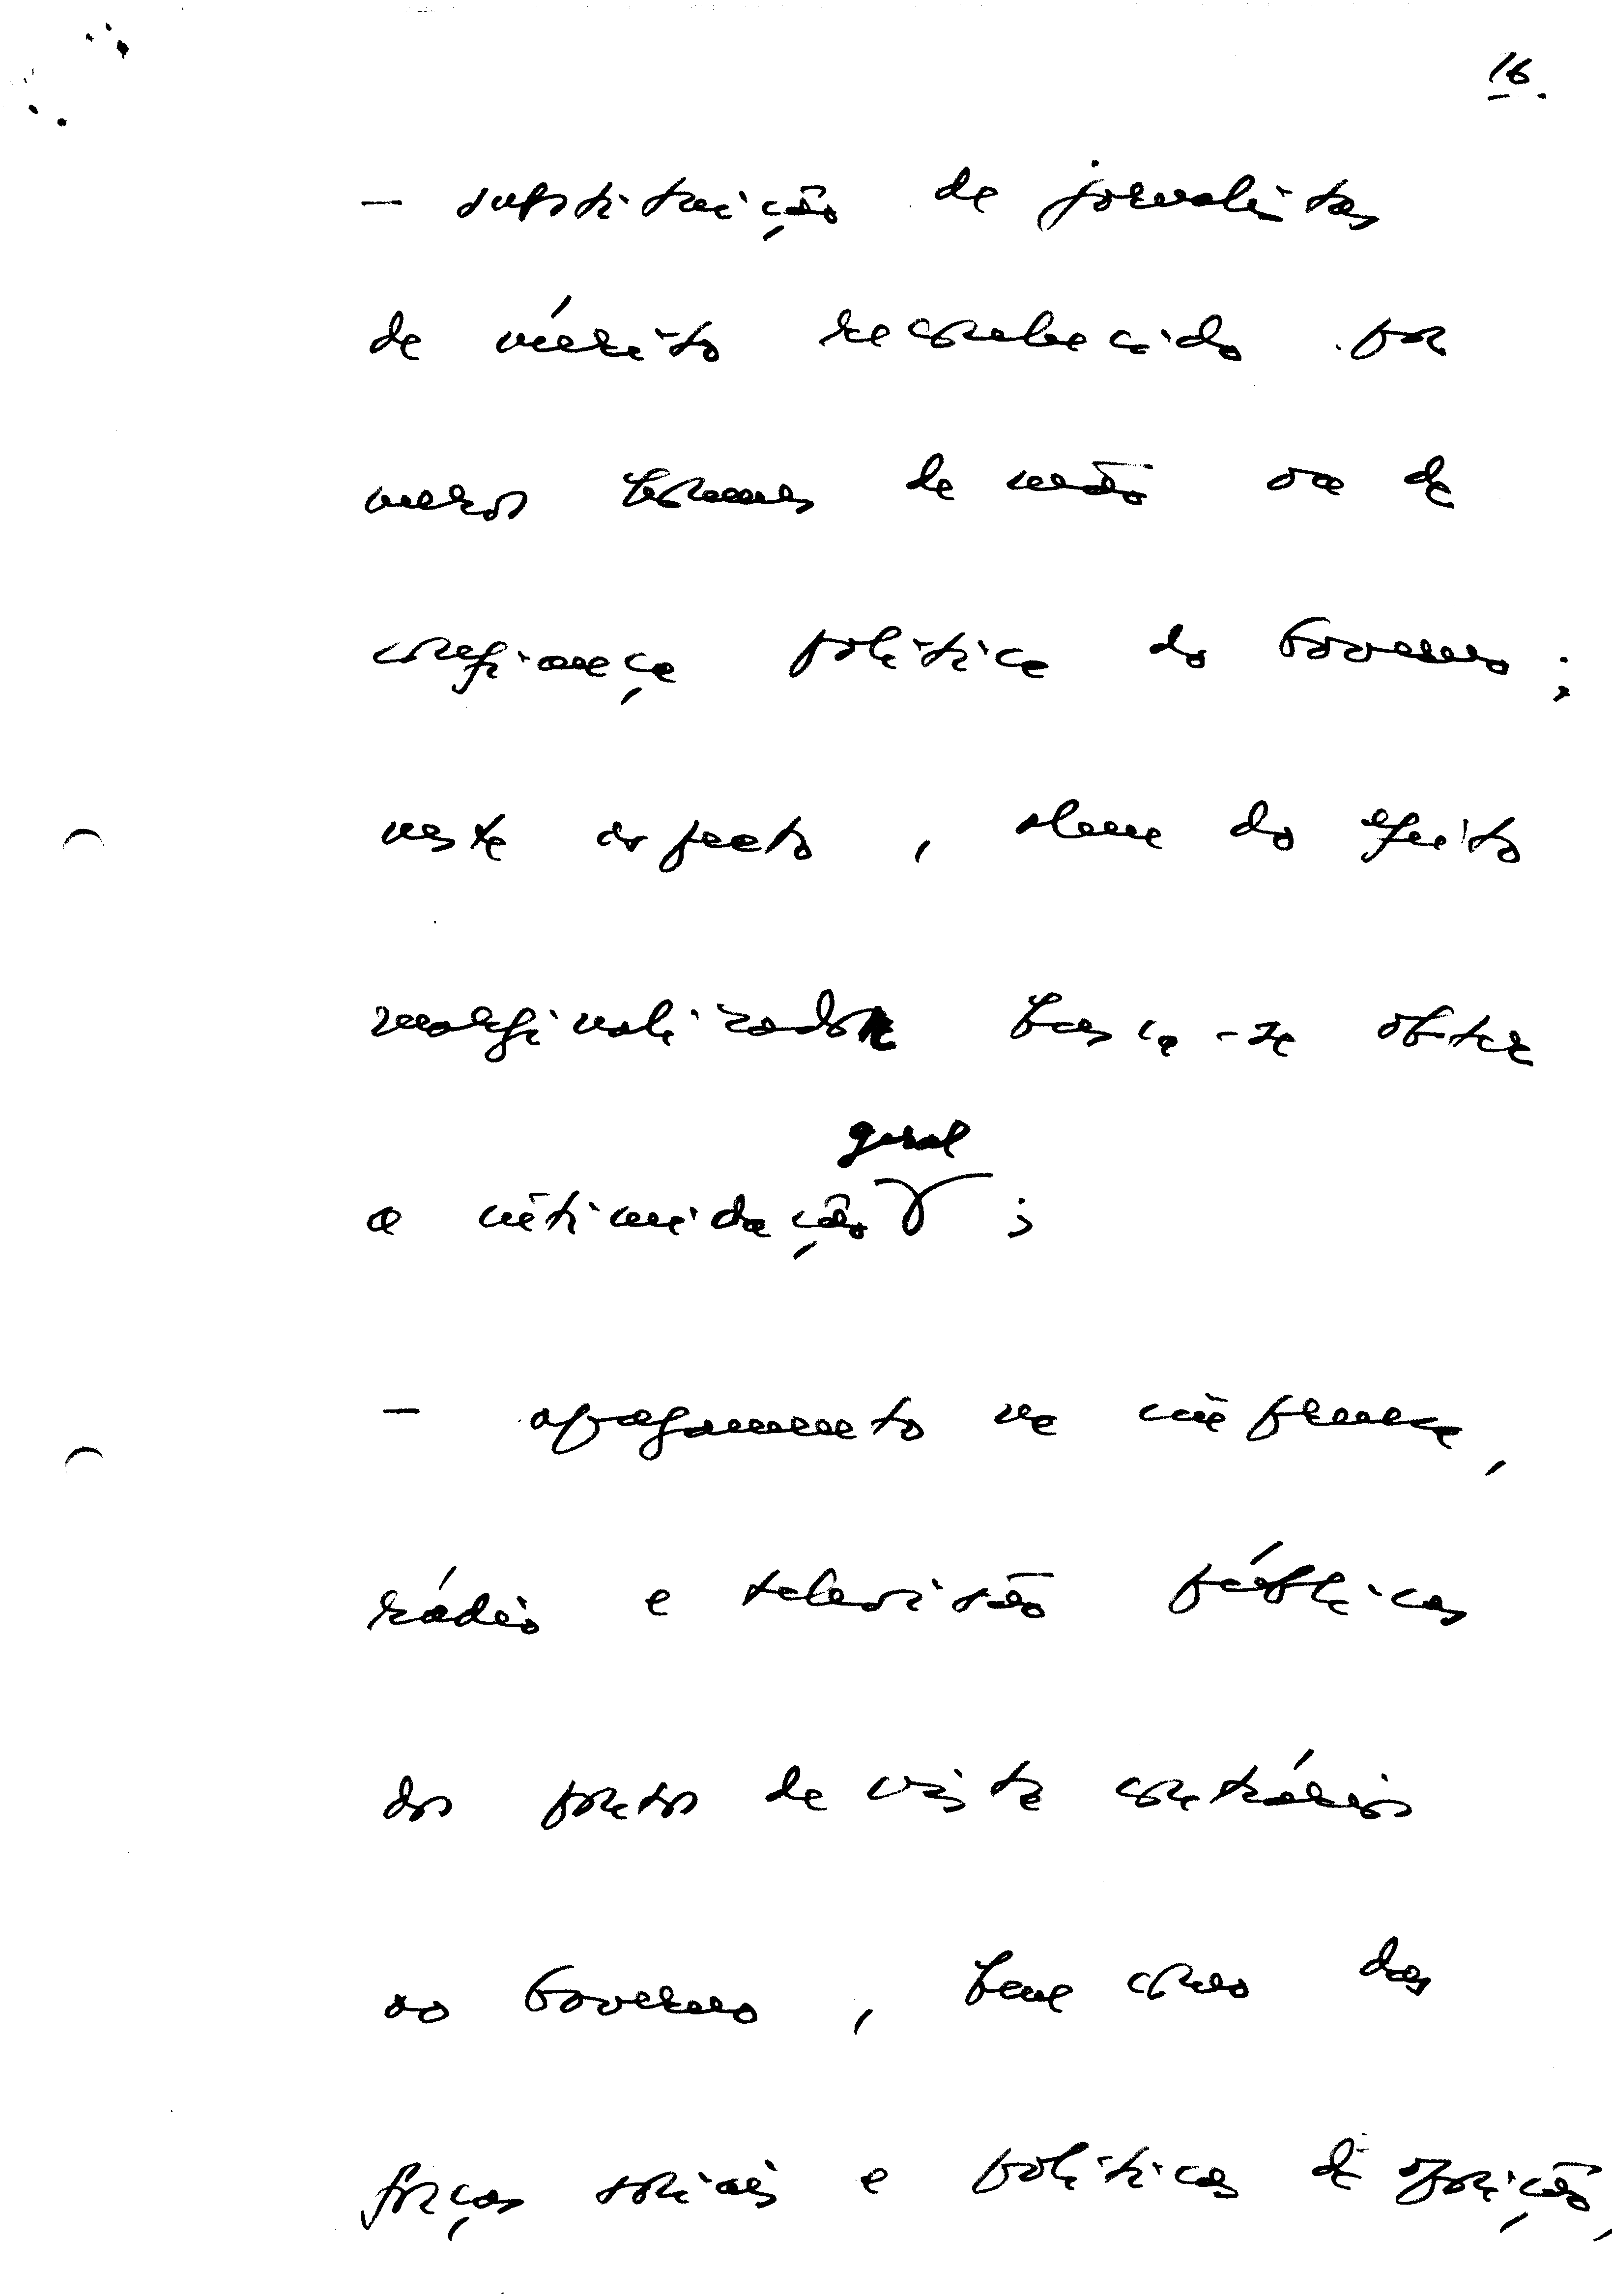 16.
– substituição de jornalistas
de mérito reconhecido por
meros homens de mão ou de
confiança política do Governo;
neste aspecto, além do efeito
marginalizador busca-se obter
geral
a intimidação ;
– apagamento na imprensa,
rádio e televisão públicas
dos pontos de vista contrários
ao Governo, bem como das
forças sociais e políticas de oposição,